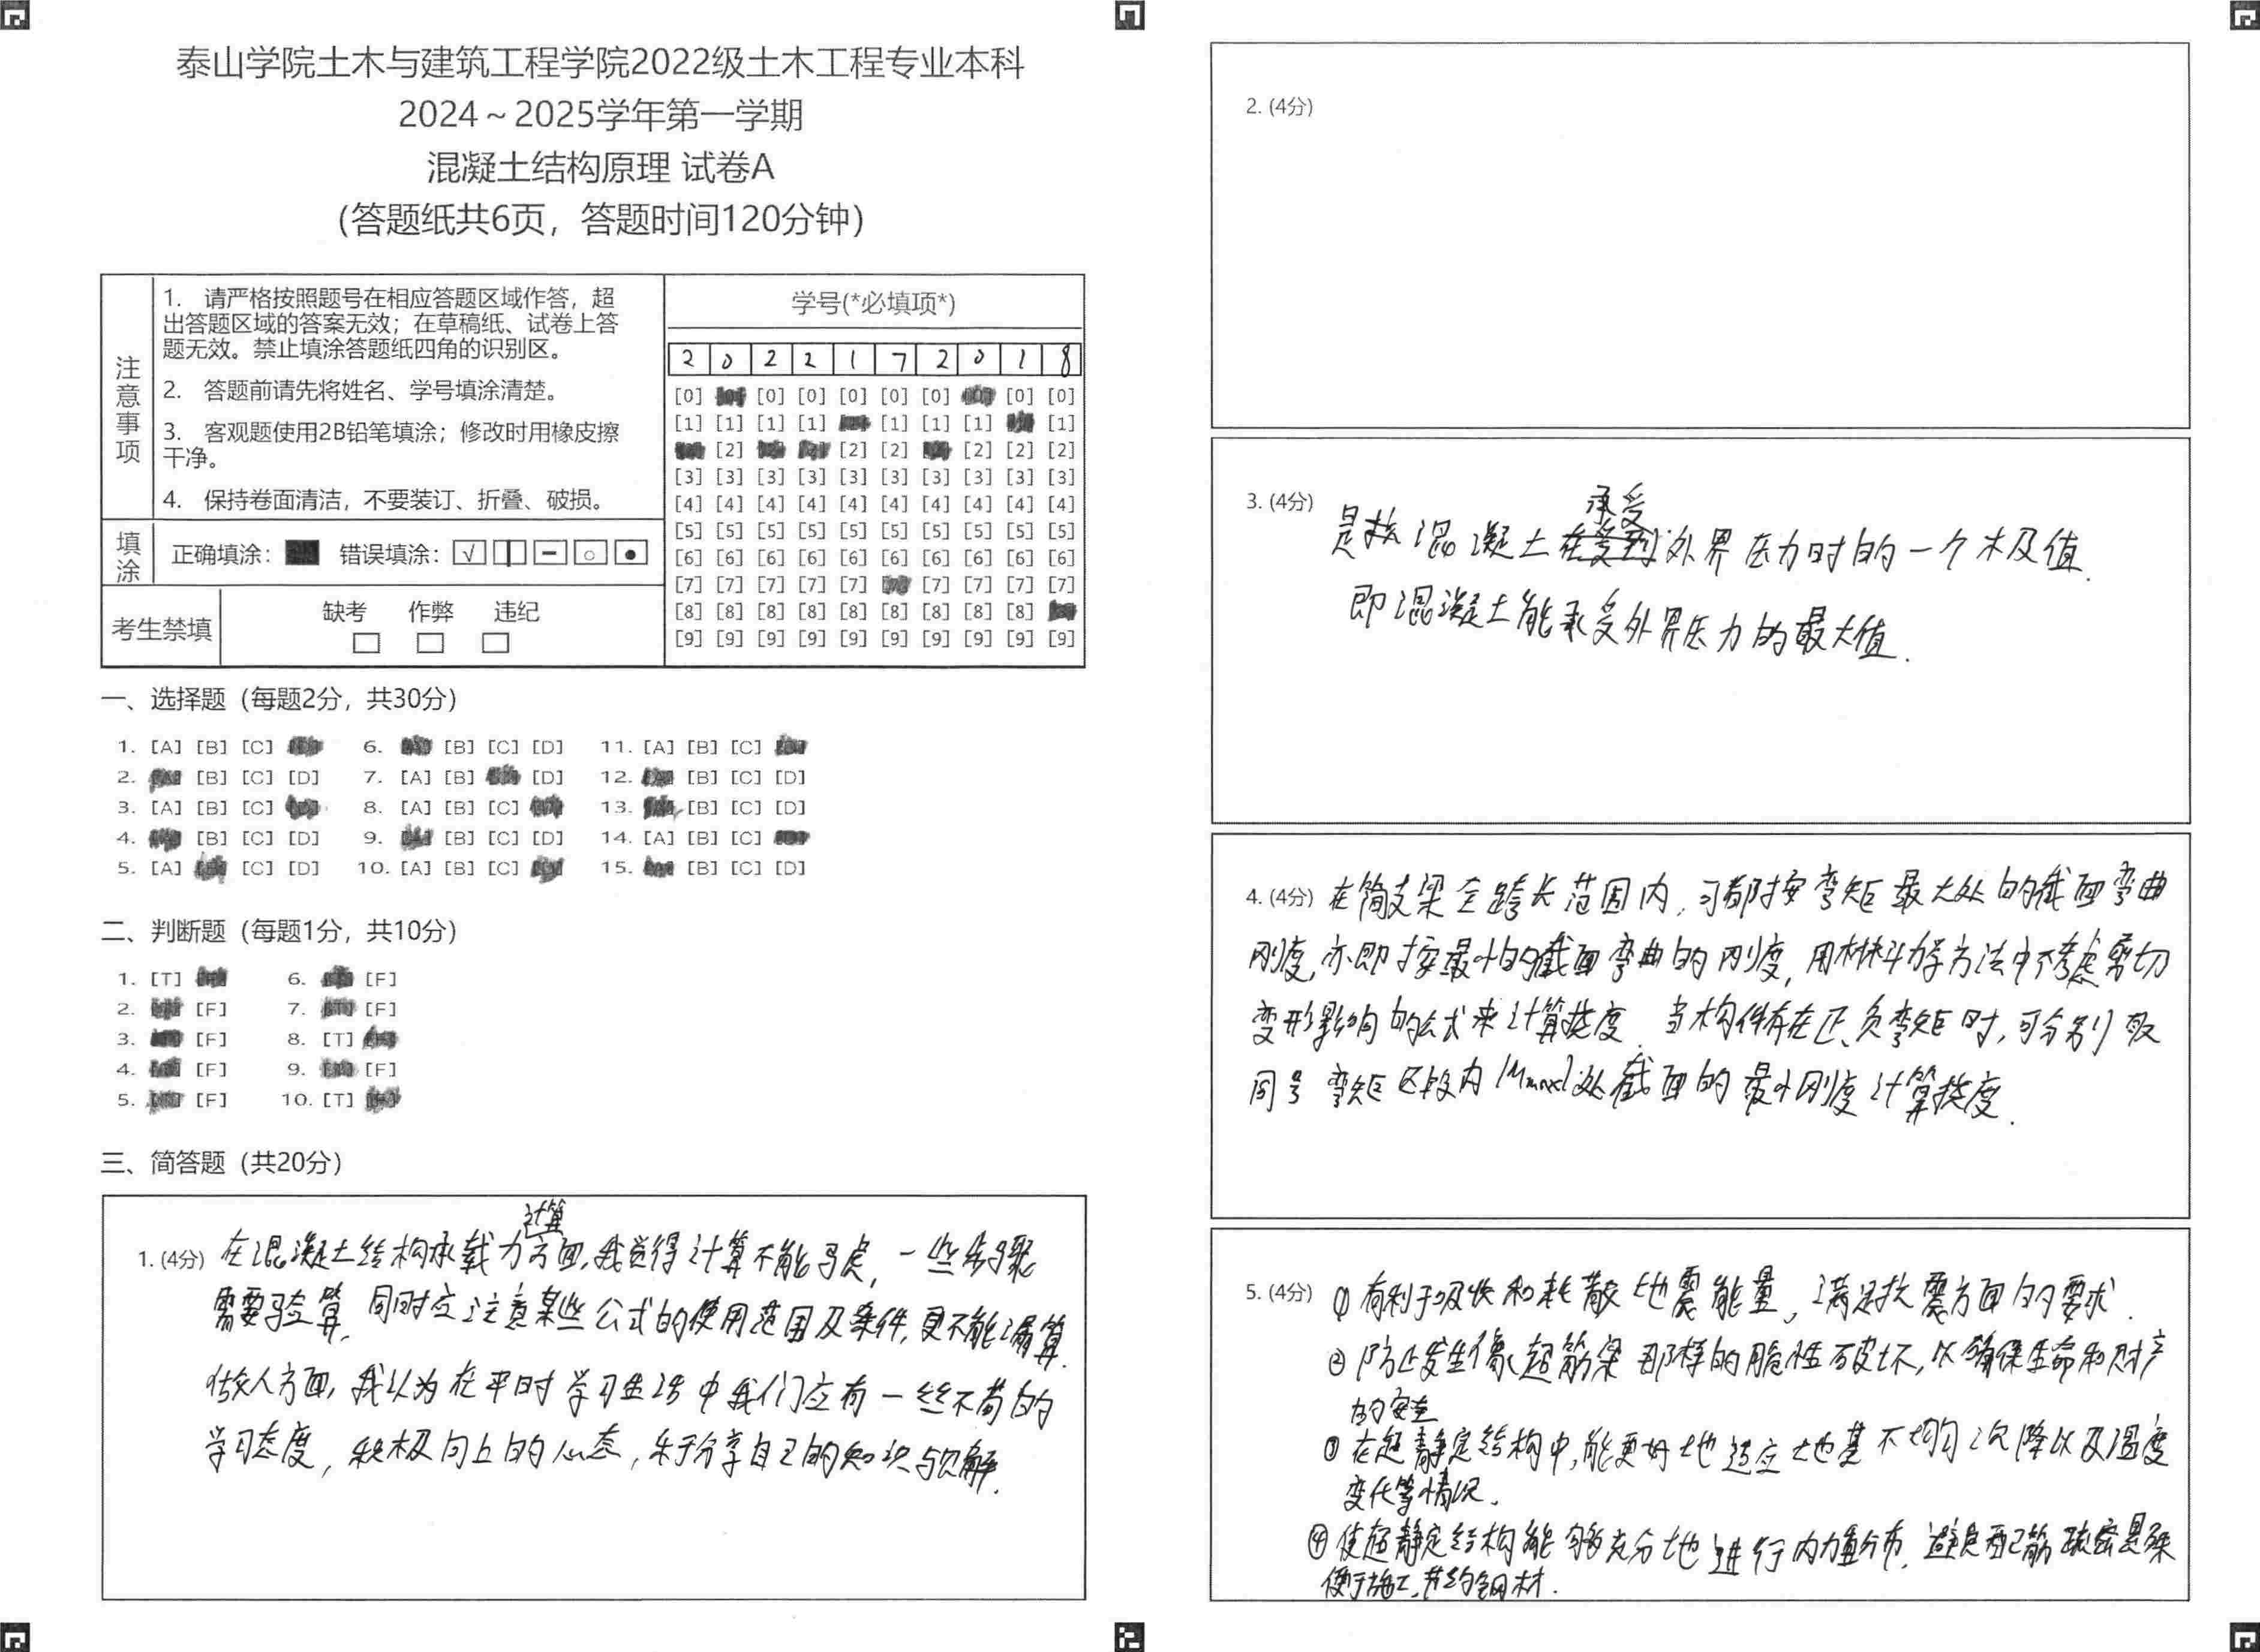 泰山学院土木与建筑工程学院2022级土木工程专业本科
2024～2025学年第一学期
混凝土结构原理 试卷A
（答题纸共6页，答题时间120分钟）
注意事项
1. 请严格按照题号在相应答题区域作答，超
出答题区域的答案无效；在草稿纸、试卷上答
题无效。禁止填涂答题纸四角的识别区。
2. 答题前请先将姓名、学号填涂清楚。
3. 客观题使用2B铅笔填涂；修改时用橡皮擦
干净。
4. 保持卷面清洁，不要装订、折叠、破损。
填涂 正确填涂： 错误填涂： √
考生禁填 缺考 作弊 违纪
学号(*必填项*)
2 0 2 2 1 7 2 0 1 8
[0] [0] [0] [0] [0] [0] [0] [0]
[1] [1] [1] [1] [1] [1] [1] [1]
[2] [2] [2] [2] [2] [2]
[3] [3] [3] [3] [3] [3] [3] [3] [3] [3]
[4] [4] [4] [4] [4] [4] [4] [4] [4] [4]
[5] [5] [5] [5] [5] [5] [5] [5] [5] [5]
[6] [6] [6] [6] [6] [6] [6] [6] [6] [6]
[7] [7] [7] [7] [7] [7] [7] [7] [7]
[8] [8] [8] [8] [8] [8] [8] [8] [8]
[9] [9] [9] [9] [9] [9] [9] [9] [9] [9]
一、选择题（每题2分，共30分）
1. [A] [B] [C] 6. [B] [C] [D] 11. [A] [B] [C]
2. [B] [C] [D] 7. [A] [B] [D] 12. [B] [C] [D]
3. [A] [B] [C] 8. [A] [B] [C] 13. [B] [C] [D]
4. [B] [C] [D] 9. [B] [C] [D] 14. [A] [B] [C]
5. [A] [C] [D] 10. [A] [B] [C] 15. [B] [C] [D]
二、判断题（每题1分，共10分）
1. [T] 6. [F]
2. [F] 7. [F]
3. [F] 8. [T]
4. [F] 9. [F]
5. [F] 10. [T]
三、简答题（共20分）
1. (4分) 在混凝土结构承载力计算方面,我觉得计算不能马虎,一些步骤
需要验算,同时应注意某些公式的使用范围及条件,更不能漏算.
做人方面,我认为在平时学习生活中我们应有一丝不苟的
学习态度,积极向上的心态,乐于分享自己的知识与见解.
2. (4分)
3. (4分) 是指混凝土承受外界压力时的一个木及值.
即混凝土能承受外界压力的最大值.
4. (4分) 在简支梁全跨长范围内,可都按弯矩最大处的截面弯曲
刚度,亦即按最小的截面弯曲的刚度,用材料力学方法中不考虑剪切
变形影响的公式来计算挠度.当构件存在正、负弯矩时,可分别取
同号弯矩区段内|Mmax|处截面的最小刚度计算挠度.
5. (4分) ①有利于吸收和耗散地震能量,满足抗震方面的要求.
②防止发生像超筋梁那样的脆性破坏,以确保生命和财产
的安全
③在超静定结构中,能更好地适应地基不均匀沉降以及温度
变化等情况.
④使超静定结构能够充分地进行内力重分布,避免配筋疏密悬殊
便于施工,节约钢材.